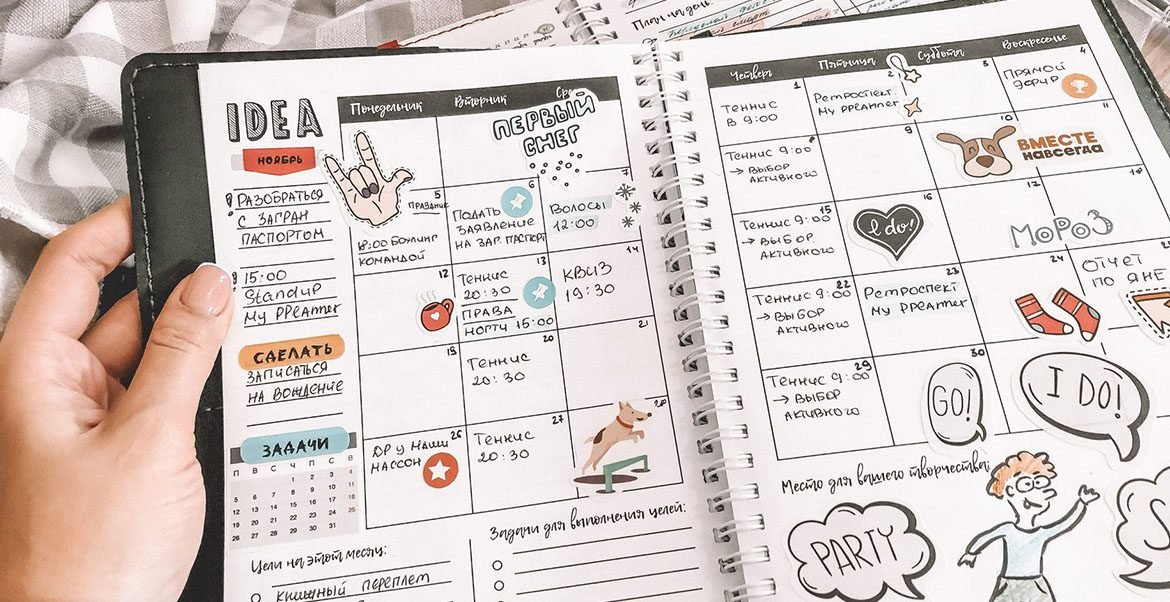 План на день:
IDEA
НОЯБРЬ
! РАЗОБРАТЬСЯ
С ЗАГРАН
ПАСПОРТОМ
15:00
StandUP
My PPEAmer
СДЕЛАТЬ
ЗАПИСАТЬСЯ
НА ВОЖДЕНИЕ
ЗАДАЧИ
П В С Ч П С В
1 2 3 4
5 6 7 8 9 10 11
12 13 14 15 16 17 18
19 20 21 22 23 24 25
26 27 28 29 30 31
Понедельник Вторник
ПЕРВЫЙ
СНЕГ
5 6 7
ПРАЗДНИК
18:00 БОУЛИНГ
КОМАНДОЙ
ПОДАТЬ
ЗАЯВЛЕНИЕ
НА ЗАГ. ПАСПОРТ
ВОЛОСЫ
12:00
12 13 14
ТЕННИС
20:30
ПРАВА
НОГТИ 15:00
КВИЗ
19:30
19 20 21
ТЕННИС
20:30
26 27 28
ДР У МАШИ
МАССОН
ТЕННИС
20:30
Цели на этот месяц:
КНИЖНЫЙ ПЕРЕПЛЕТ
Задачи для выполнения целей:
Четверг Пятница Суббота Воскресенье
1 2 3 4
ТЕННИС
В 9:00
РЕТРОСПЕКТ.
My PPEAmer
ПРЯМОЙ
ЭФИР
8 9 10 11
ТЕННИС 9:00
→ ВЫБОР
АКТИВНОГО
ВМЕСТЕ
НАВСЕГДА
15 16 17 18
ТЕННИС 9:00
→ ВЫБОР
АКТИВНОГО
I do!
МОРОЗ
22 23 24
ТЕННИС 9:00
→ ВЫБОР
АКТИВНОГО
РЕТРОСПЕКТ
My PPEAmer
ОТЧЕТ
ПО ЯНЕ
29 30
ТЕННИС 9:00
→ ВЫБОР
АКТИВНОГО
GO!
I DO!
Место для вашего творчества:
PARTY